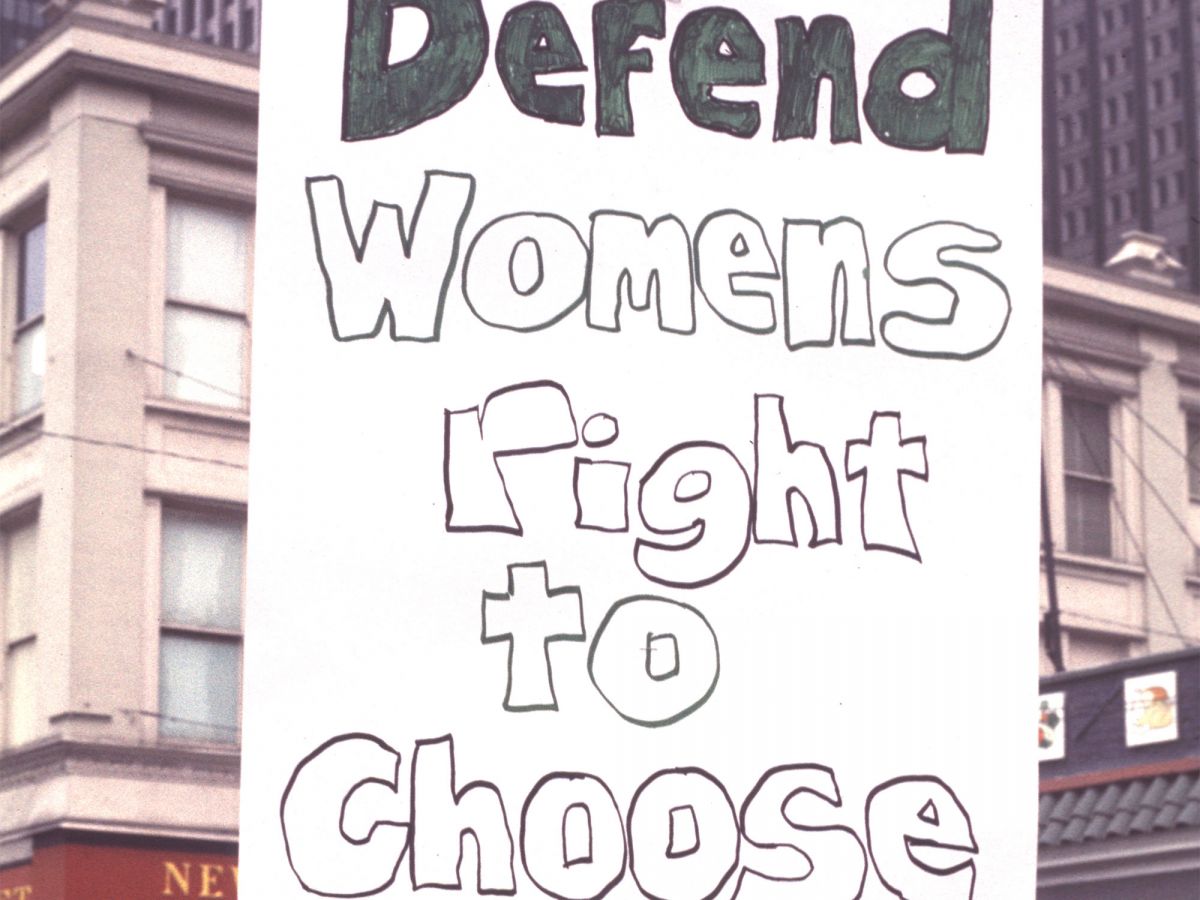 Defend
Womens
right
to
Choose
NEW